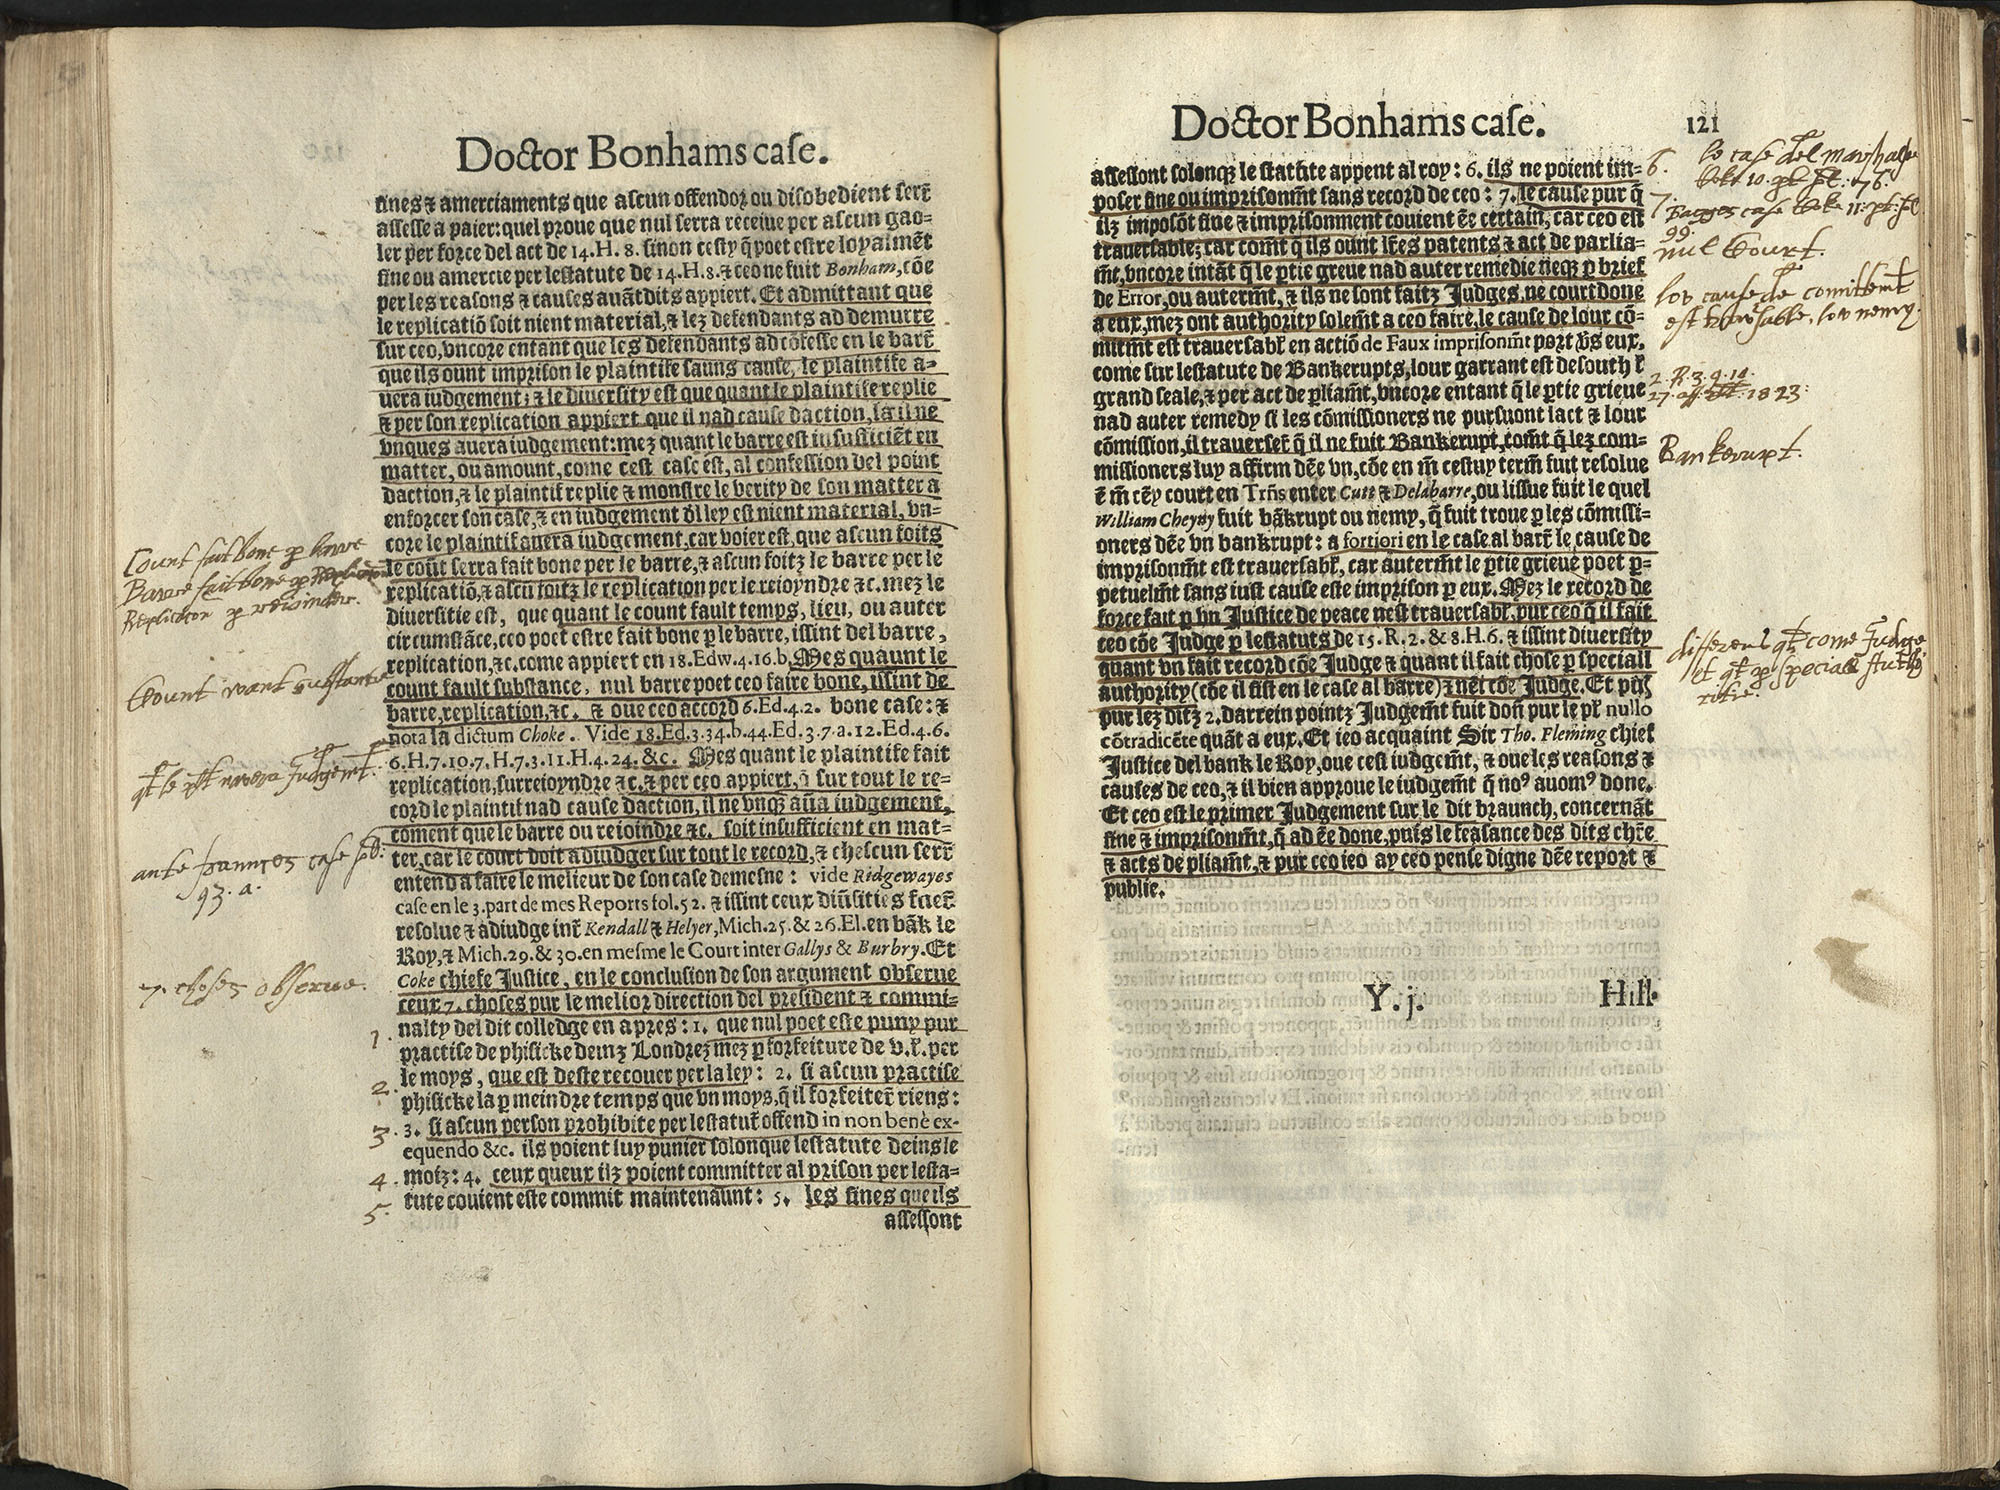 Doctor Bonhams case.
fines & amerciaments que ascun offendor ou disobedient serr̃
assesse a paier: quel proue que nul serra receiue per ascun gao-
ler per force del act de 14. H. 8. sinon cesty q̃ poet estre loyalmẽt
fine ou amercie per lestatute de 14. H.8. & ceo ne fuit Bonham, cõe
per les reasons & causes auãtdits appiert. Et admittant que
le replicatiõ soit nient material, & lez defendants ad demurre
sur ceo, vncore entant que les defendants ad cõfesse en le barr̃
que ils ount imprison le plaintife sauns cause, le plaintife a-
uera iudgement: & le diuersity est que quant le plaintife replie
& per son replication appiert que il nad cause daction, la il ne
vnques auera iudgement: mez quant le barre est insufficiẽt en
matter, ou amount, come cest case est, al confession del point
daction, & le plaintif replie & monstre le verity de son matter a
enforcer son case, & en iudgement d̃l ley est nient material, vn-
core le plaintif auera iudgement, car voier est, que ascun foits
le coũt serra fait bone per le barre, & ascun foitz le barre per le
replicatiõ, & ascũ foitz le replication per le reioyndre &c. mez le
diuersitie est, que quant le count fault temps, lieu, ou auter
circumstãce, ceo poet estre fait bone p le barre, issint del barre,
replication, &c. come appiert en 18. Edw. 4. 16. b. Mes quaunt le
count fault substance, nul barre poet ceo faire bone, issint de
barre, replication, &c. & oue ceo accord 6. Ed. 4. 2. bone case: &
nota la dictum Choke. Vide 18. Ed. 3. 34. b. 44. Ed. 3. 7. a. 12. Ed. 4. 6.
6. H. 7. 10. 7. H. 7. 3. 11. H. 4. 24. &c. Mes quant le plaintife fait
replication, surreioyndre &c. & per ceo appiert, q̃ sur tout le re-
cord le plaintif nad cause daction, il ne vnq; aũa iudgement,
coment que le barre ou reioindre &c. soit insufficient en mat-
ter, car le court doit adiudger sur tout le record, & chescun serr̃
entend a faire le melieur de son case demesne: vide Ridgewayes
case en le 3. part de mes Reports fol. 52. & issint ceux diũsities fuer̃
resolue & adiudge inr̃ Kendall & Helyer, Mich. 25. & 26. El. en bãk le
Roy, & Mich. 29. & 30. en mesme le Court inter Gallys & Burbry. Et
Coke chiefe Justice, en le conclusion de son argument obserue
ceux 7. choses pur le melior direction del president & commi-
nalty del dit colledge en apres: 1. que nul poet este puny pur
practise de phisicke deinz Londrez mez p forfeiture de v. l̃. per
le moys, que est deste recouer per la ley: 2. si ascun practise
phisicke la p meindre temps que vn moys, q̃ il forfeiter̃ riens:
3. si ascun person prohibite per lestatut̃ offend in non benè ex-
equendo &c. ils poient luy punier solonque lestatute deins le
moiz: 4. ceux queux ilz poient committer al prison per lesta-
tute couient este commit maintenaunt: 5. les fines que ils
assessont
Count fait bone p barre
Barre fait bone p Replication
Replication p reioinder.
Count want substance
ante case fol:
93. a.
7. choses obserue.
1.
2.
3.
4.
5.
Doctor Bonhams case.
121
assessont solonq; le statute appent al roy: 6. ils ne poient im-
poser fine ou imprisonm̃t sans record de ceo: 7. le cause pur q̃
ilz imposõt fine & imprisonment couient ẽe certain, car ceo est
trauersable; car com̃t q̃ ils ount lr̃es patents & act de parlia-
m̃t, vncore intãt q̃ le ptie greue nad auter remedie neq; p brief
de Error, ou auterm̃t, & ils ne sont faitz Judges, ne court done
a eux, mez ont authority solem̃t a ceo faire, le cause de lour cõ-
mitm̃t est trauersabl̃ en actiõ de Faux imprisonm̃t port ṽs eux,
come sur lestatute de Bankerupts, lour garrant est desouth l̃
grand seale, & per act de pliam̃t, vncore entant q̃ le ptie grieue
nad auter remedy si les cõmissioners ne pursuont lact & lour
cõmission, il trauerser̃ q̃ il ne fuit Bankerupt, com̃t q̃ lez com-
missioners luy affirm dẽe vn, cõe en m̃ cestuy term̃ fuit resolue
ẽ m̃ cẽy court en Trñs enter Cutt & Delabarre, ou lissue fuit le quel
William Cheyny fuit bãkrupt ou nemy, q̃ fuit troue p les cõmissi-
oners dẽe vn bankrupt: a fortiori en le case al barr̃ le cause de
imprisonm̃t est trauersabl̃, car auterm̃t le ptie grieue poet p-
petuelm̃t sans iust cause este imprison p eux. Mez le record de
force fait p vn Justice de peace nest trauersabl̃, pur ceo q̃ il fait
ceo cõe Judge p lestatuts de 15. R. 2. & 8. H. 6. & issint diuersity
quant vn fait record cõe Judge & quant il fait chose p speciall
authority (cõe il fist en le case al barre) & nẽt cõe Judge. Et pur
pur lez ditz 2. darrein pointz Judgem̃t fuit don̄ pur le pl̃ nullo
cõtradicẽte quãt a eux. Et ieo acquaint Sir Tho. Fleming chief
Justice del bank le Roy, oue cest iudgem̃t, & oue les reasons &
causes de ceo, & il bien approue le iudgem̃t q̃ noꝰ auomꝰ done.
Et ceo est le primer Judgement sur le dit braunch, concernãt
fine & imprisonm̃t, q̃ ad ẽe done, puis le feasance des dits chr̃e
& acts de pliam̃t, & pur ceo ieo ay ceo pense digne dẽe report &
publie.
Y. j.
Hill.
6. le case del marshalse
Coke 10. pt fol: 76.
7. Bagges case Coke 11. pt: fol
99.
nul Court.
lor cause de comittemt
est trauersable, lor nemy.
2. R. 3. 9. 10.
Bankerupt.
different qt come Judge
et qt p special